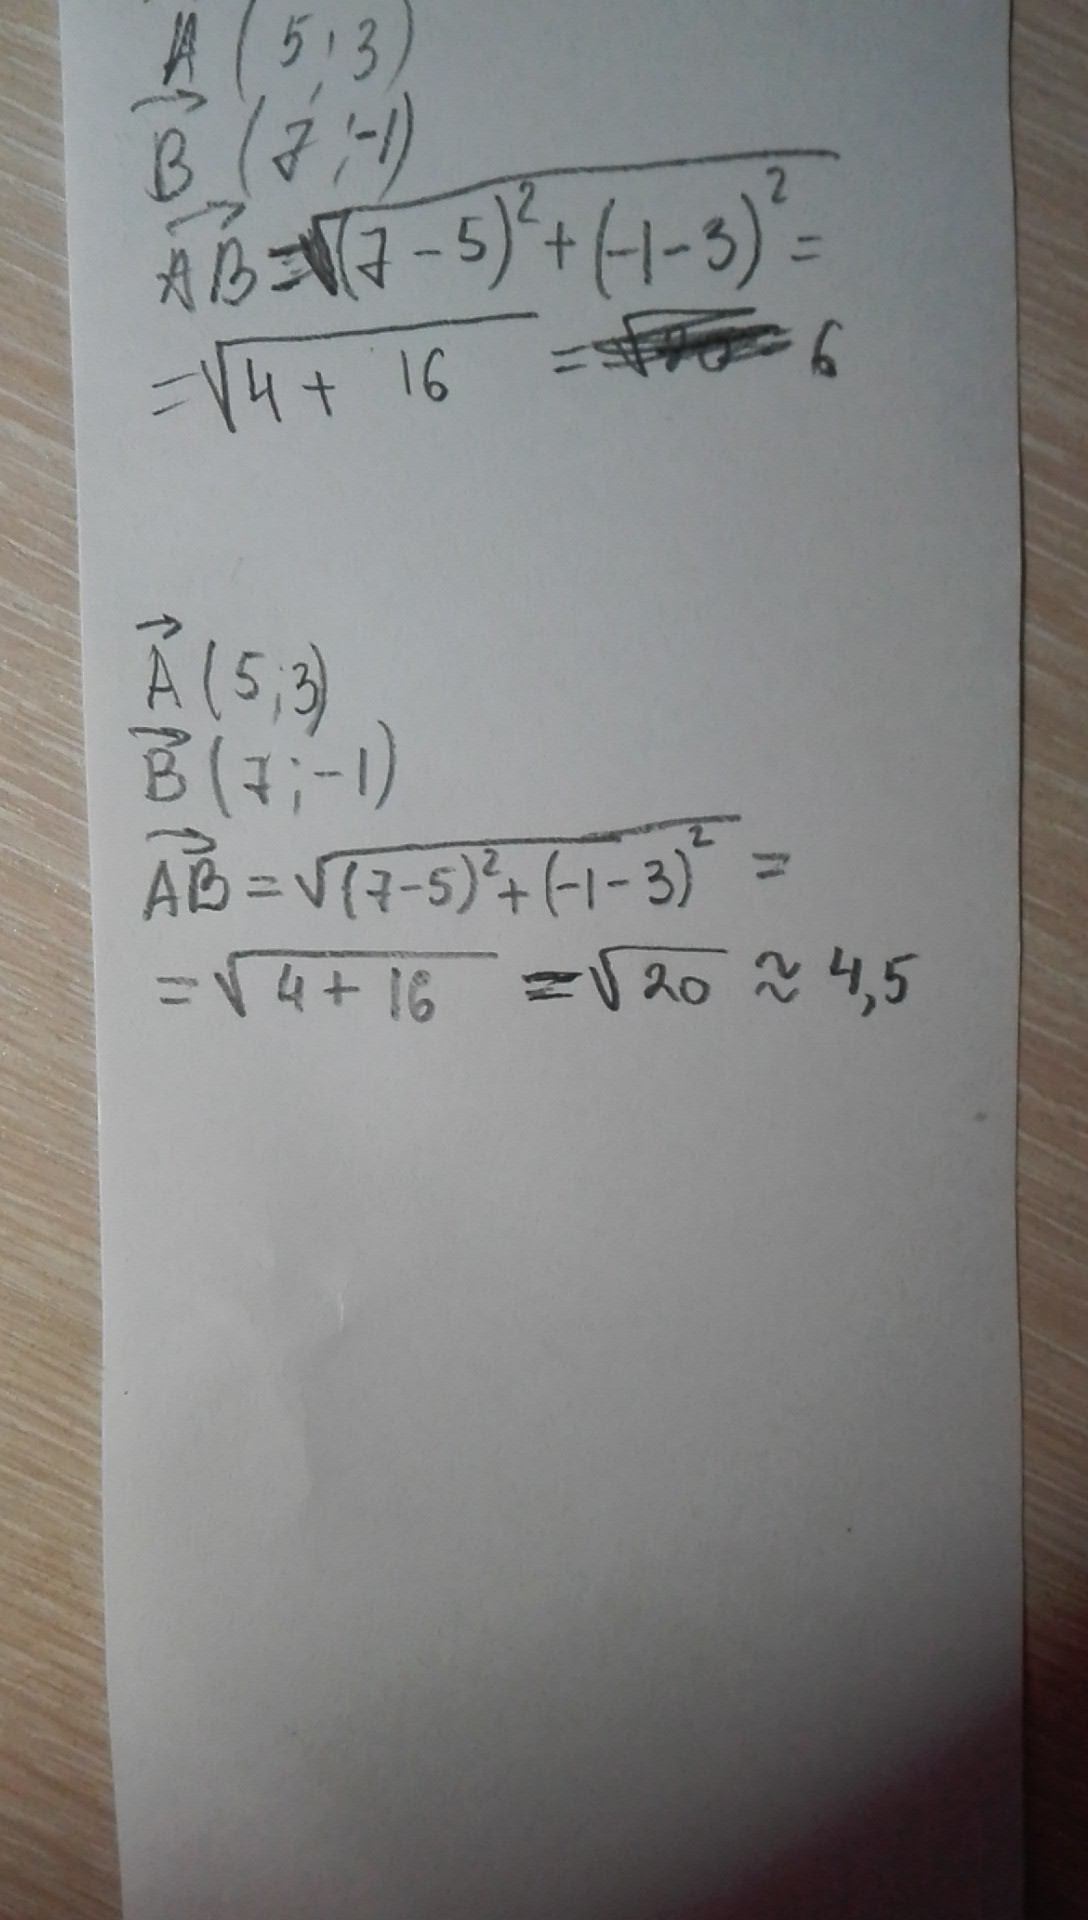 A (5;3)
B (7;-1)
AB = √(7-5)² + (-1-3)² =
= √4 + 16 = 6
A (5;3)
B (7;-1)
AB = √(7-5)² + (-1-3)² =
= √4 + 16 = √20 ≈ 4,5